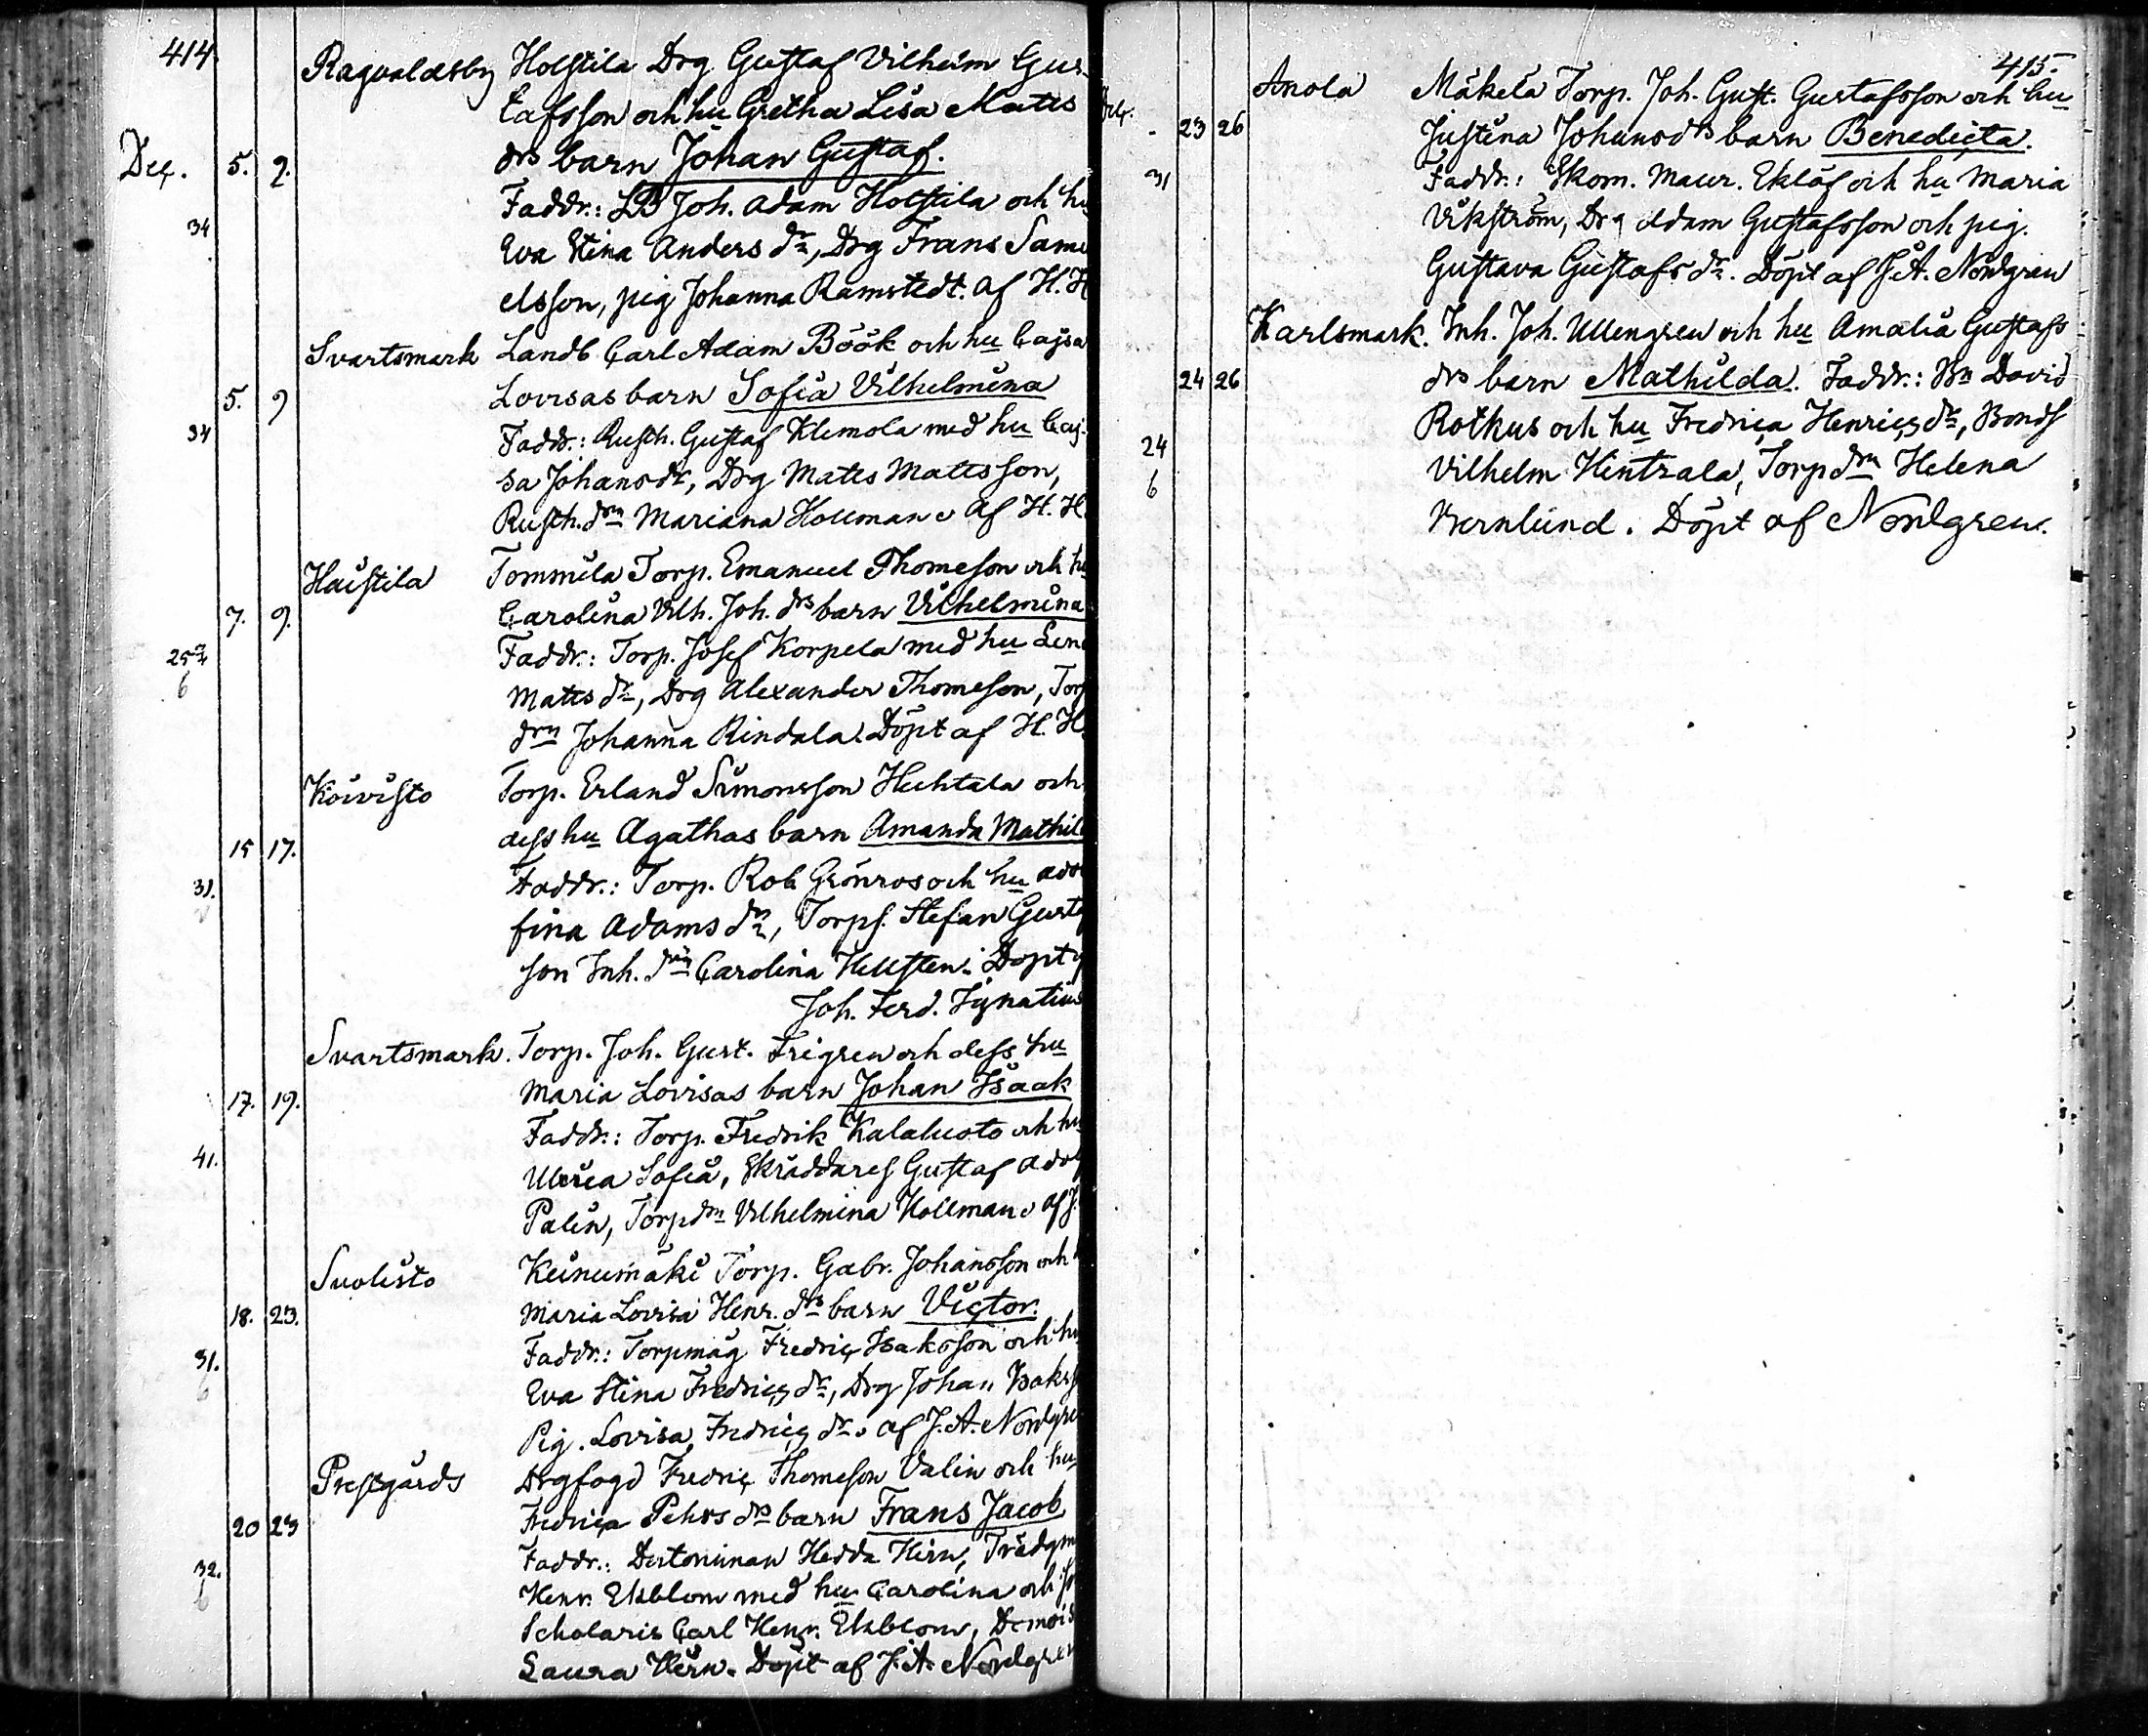 414.
Ragvaldsby Holstila Drg Gustaf Vilhelm Gus-
tafsson och hu Gretha Lisa Matts
Dec. 5. 9. drs barn Johan Gustaf.
Faddr.: LB Joh. Adam Holstila och hu
34 Eva Stina Anders dr, Drg Frans Samu
elsson, pig Johanna Ramstedt. af H. H
Svartsmark Landb Carl Adam Böök och hu Cajsa
5. 9 Lovisas barn Sofia Vilhelmina
34 Faddr.: Rusth. Gustaf Klemola med hu Caj-
sa Johansdr, Drg Matts Mattsson,
Rusth. drn Mariana Hollman. Af H. H.
Haistila Tommila Torp. Emanuel Thomeson och hu
7. 9. Carolina Vilh. Joh. drs barn Vilhelmina
25 Faddr.: Torp. Josef Korpela med hu Lena
6 Matts dr, Drg Alexander Thomeson, Torp
drn Johanna Rindala. Döpt af H. H.
Koivisto Torp. Erland Simonsson Huhtala och
dess hu Agathas barn Amanda Mathil
15 17. Faddr.: Torp. Rob Grönros och hu Ado
31. fina Adams dr, Torps. Stefan Gusta
son Inh. drn Carolina Hellsten. Döpt
Joh. Ferd. Ignatius
Svartsmark. Torp. Joh. Gust. Frigren och dess hu
17. 19. Maria Lovisas barn Johan Isaak
Faddr.: Torp. Fredrik Kalaluoto och hu
41. Ulrica Sofia, Skräddares Gustaf Adol
Palin, Torpdrn Vilhelmina Hollman. af J.
Suolisto Keinumäki Torp. Gabr. Johansson och
18. 23. Maria Lovisa Henr. drs barn Victor.
Faddr.: Torpmåg Fredric Isaksson och hu
31. Eva Stina Fredrics dr, Drg Johan Isakss
6 Pig. Lovisa Fredrics dr. af J. A. Nordgre
Prestgårds Drgfogd Fredric Thomeson Valin och hu
20 23 Fredrica Pehrs drs barn Frans Jacob
Faddr.: Doctorinnan Hedda Hirn, Trädgm
32. Henr. Ekblom med hu Carolina och
6 Scholaris Carl Henr. Ekblom, Demois
Laura Hirn. Döpt af J. A. Nordgren
415.
Anola Mäkelä Torp. Joh. Gust. Gustafsson och hu
23 26 Justina Johansdrs barn Benedicta.
31 Faddr.: Skom. Maur. Eklöf och hu Maria
Vikström, Drg Adam Gustafsson och pig.
Gustava Gustafs dr. Döpt af J. A. Nordgren
Karlsmark. Inh. Joh. Ullengren och hu Amalia Gustafs
24 26 drs barn Mathilda. Faddr.: Bn David
Rotkus och hu Fredrica Henrics dr, Bonds
24 Vilhelm Hintzala, Torpdrn Helena
6 Bernlund. Döpt af Nordgren.